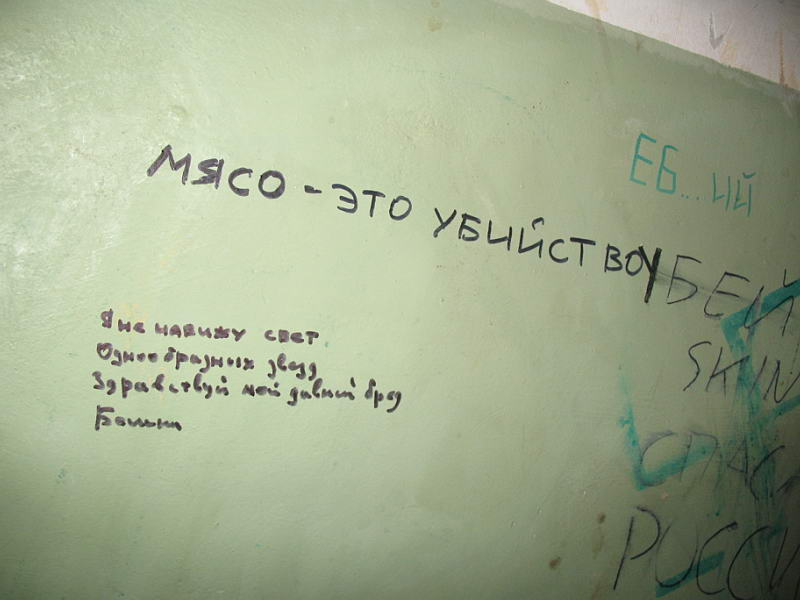 МЯСО - ЭТО УБИЙСТВО
ЕБ...ИЙ
УБЕЙ
SKIN
СПАС
РОССИ
Я не навижу свет
Однообразных звезд
Здравствуй мой давний бред